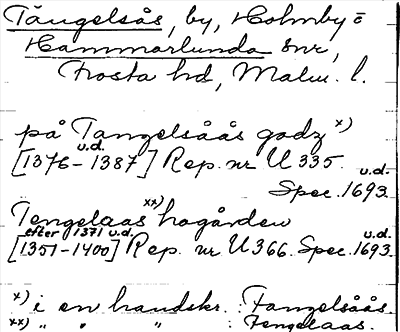 Tångelsås, by, Holmby o
Hammarlunda snr,
Frosta hd, Malm. l.
på Tangelsåås godz x)
u.d.
[1376-1387] Rep. nr U 335. u.d.
Spec. 1693
Tengelaas xx) hogården
efter 1371 u.d. u.d.
[1351-1400] Rep. nr U 366. Spec. 1693.
x) i en handskr. : Fangelsåås.
xx) " " " : Fengelaas.